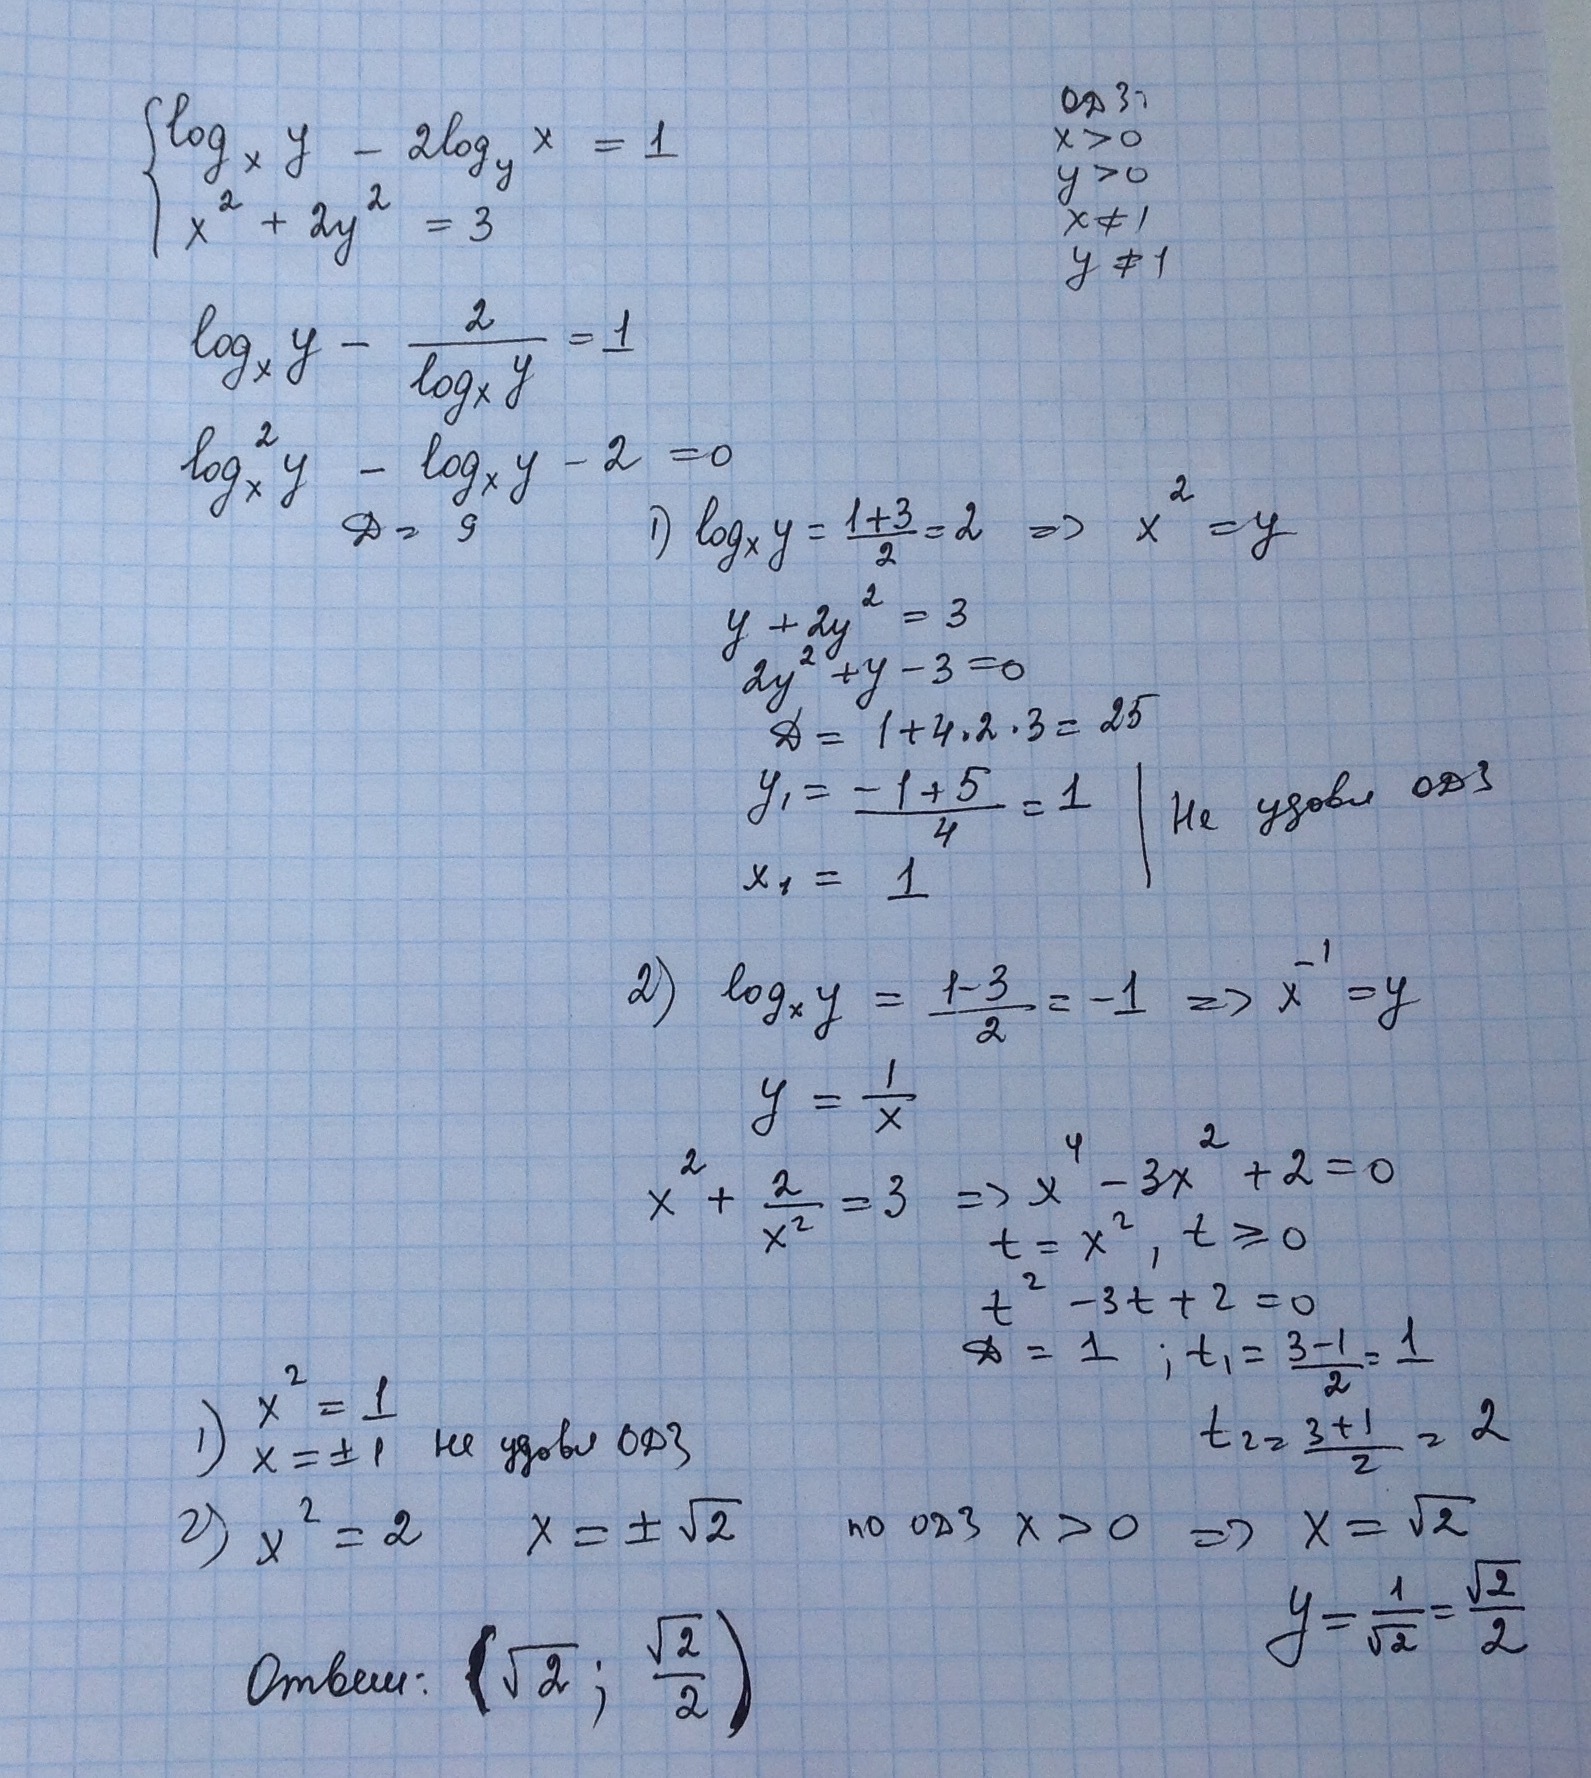 ОДЗ:
x > 0
y > 0
x ≠ 1
y ≠ 1
{ log_x y − 2log_y x = 1
x² + 2y² = 3
log_x y − 2/(log_x y) = 1
log²_x y − log_x y − 2 = 0
Д = 9
1) log_x y = (1+3)/2 = 2 => x² = y
y + 2y² = 3
2y² + y − 3 = 0
Д = 1+4·2·3 = 25
y₁ = (−1+5)/4 = 1 | Не удовл ОДЗ
x₁ = 1
2) log_x y = (1−3)/2 = −1 => x⁻¹ = y
y = 1/x
x² + 2/x² = 3 => x⁴ − 3x² + 2 = 0
t = x², t ≥ 0
t² − 3t + 2 = 0
Д = 1 ; t₁ = (3−1)/2 = 1
t₂ = (3+1)/2 = 2
1) x² = 1
x = ±1 не удовл ОДЗ
2) x² = 2 x = ±√2 по ОДЗ x > 0 => x = √2
y = 1/√2 = √2/2
Ответ: (√2 ; √2/2)